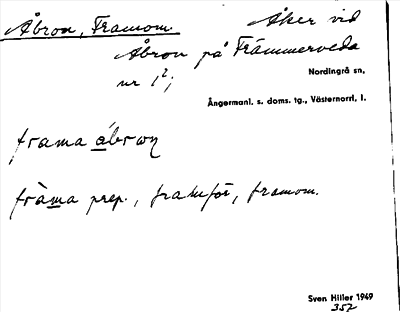 Åbron, Framom
Åker vid
Åbron på Främmerveda
nr 1²;
Nordingrå sn,
Ångermanl. s. doms. tg., Västernorrl. l.
frama åbrωn
fràma prep., framför, framom.
Sven Hiller 1949
352